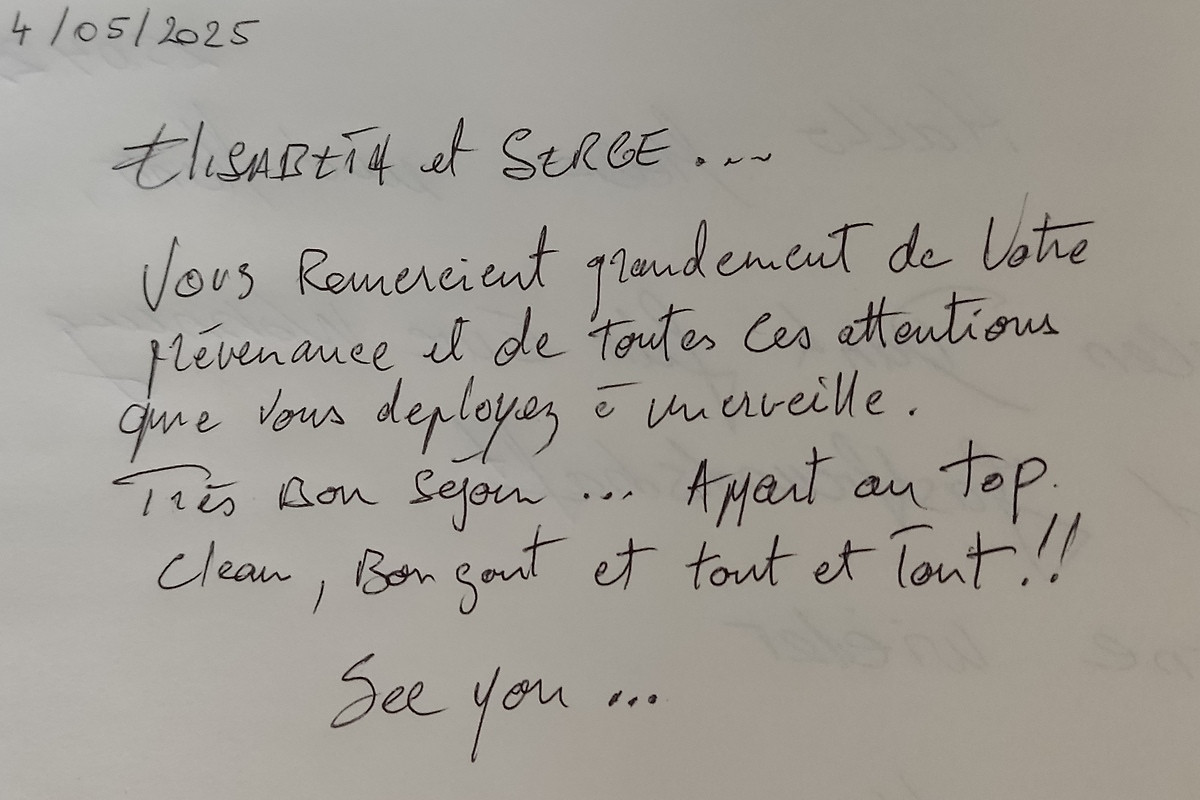 4/05/2025
ElISABETH et SERGE ....
Vous Remercient grandement de Votre
prévenance et de toutes Ces attentions
que vous deployez à merveille.
Très Bon Séjour ... Appart au Top.
Clean, Bon gout et tout et Tout !!
See you ...